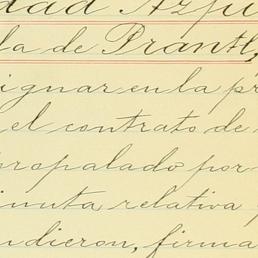 dad Azpu
la de Prantl,
ignar en la pr
el contrato de
propalado por
inuta relativa
ndieron, firma